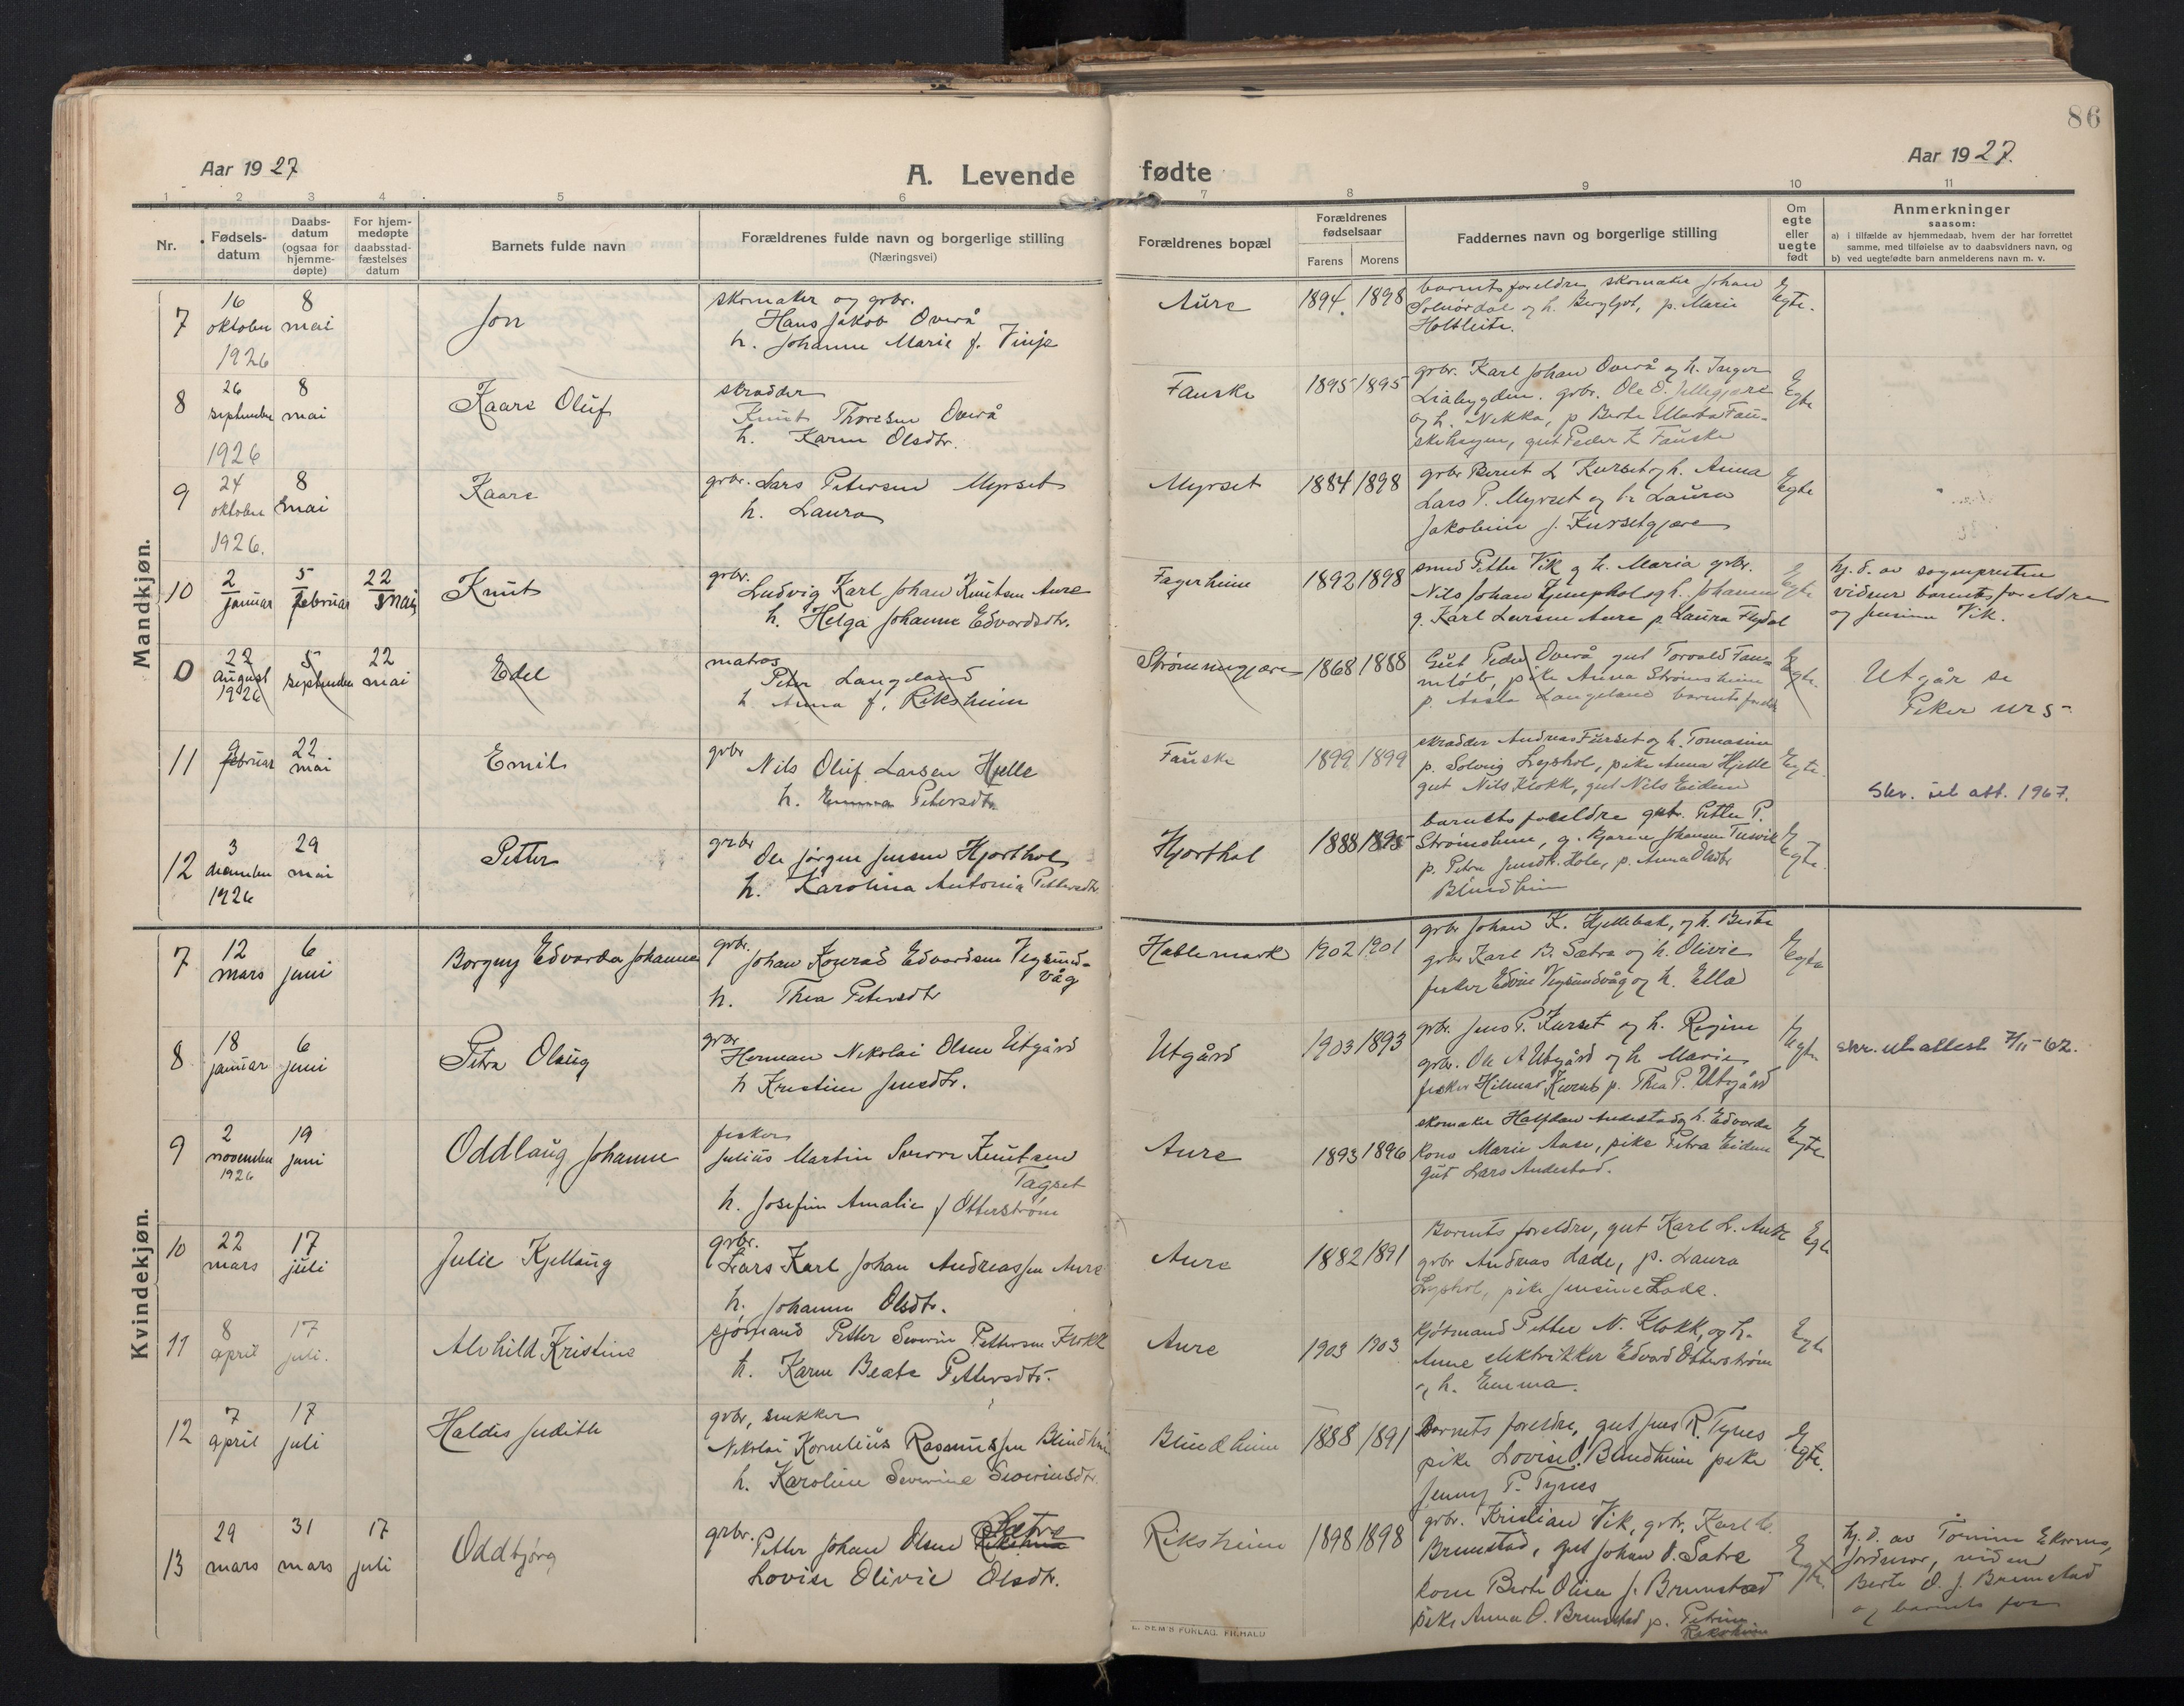 86
Aar 1927
A. Levende fødte
Aar 1927.
1 2 3 4 5 6 7 8 9 10 11
Nr.
Fødsels-
datum
Daabs-
datum
(ogsaa for
hjemme-
døpte)
For hjem-
medøpte
daabsstad-
fæstelses
datum
Barnets fulde navn
Forældrenes fulde navn og borgerlige stilling
(Næringsvei)
Forældrenes bopæl
Forældrenes
fødselsaar
Farens Morens
Faddernes navn og borgerlige stilling
Om
egte
eller
uegte
født
Anmerkninger
saasom:
a) i tilfælde av hjemmedaab, hvem der har forrettet
samme, med tilføielse av to daabsvidners navn, og
b) ved uegtefødte barn anmelderens navn m. v.
Mandkjøn.
7
16
oktober
1926
8
mai
Jon
skomaker og grbr.
Hans Jakob Overå
h. Johanne Marie f. Vinje
Aure
1894. 1898
barnets foreldre, skomaker Johan
Solnørdal og h. Bergljot, p. Marie
Holtleite.
Egte.
8
26
september
1926
8
mai
Kaare Oluf
skrædder
Knut Thoresen Overå
h. Karen Olsdtr.
Fauske
1895 1895
grbr. Karl Johan Overå og h. Inger
Liabygden. grbr. Ole O.
og h. Nikka, p. Berte Marta Fau-
skehagen, gut Peder K. Fauske
Egte
9
24
oktober
1926.
8
mai
Kaare
grbr. Lars Petersen Myrset
h. Laura
Myrset
1884 1898
grbr Bernt L Kurset og h. Anna
Lars P. Myrset og h. Laura
Jakobine J. Kursetgjære
Egte
10
2
januar
5
februar
22
mai
Knut
grbr.
Ludvig Karl Johan Knutsen Aure
h. Helga Johanne Edvardsdtr.
Fagerheim
1892 1898
smed Petter Vik og h. Maria grbr.
Nils Johan og h. Johanne
g. Karl Larsen Aure p. Laura Flydal
Egte
hj. d. av sognepresten
vidner barnets foreldre
og Jensine Vik.
0
22
august
1926
5
september
22
mai
Edel
matros
Peter Langeland
h Anna f. Riksheim
Strømmegjære
1868 1888
Gut Peder Overå gut Torvald Fau-
pike Anna Strømsheim
p. Aasta Langeland barnets foreldre
Egte.
Utgår se
Piker nr 5
11
9
februar
22
mai
Emil
grbr
Nils Oluf Larsen Hjelle
h. Emma Petersdtr
Fauske
1899 1899
skrædder Andreas Furset og h. Tomasine
p. Solveig Lyshol, pike Anna Hjelle
gut Nils Klokk, gut Nils Eidem
Egte.
Skr. ut att. 1967.
12
3
desember
1926
29
mai
Petter
grbr
Ole Jørgen Jensen Hjorthol
h. Karolina Antonia Pettersdtr.
Hjorthol
1888 1895
barnets foreldre grbr. Petter P.
Strømsheim, g. Bjarne Johansen Tusvik
p. Petra Jensdtr. Hole, p. Anna Olsdtr
Blindheim
Egte.
Kvindekjøn.
7
12
mars
6
juni
Borgny Edvarda Johanne
grbr.
Johan Konrad Edvardsen Vegsund-
våg
h. Thea Petersdtr
Hattemark
1902 1901
grbr Johan K. Hjellebak, og h. Berte
grbr Karl B. Sætra og h. Olivie
fisker Edvin Vegsundvåg og h. Ella
Egte
8
18
januar
6
juni
Petra Olaug
grbr
Herman Nikolai Olsen Utgård
h Kristine Jensdtr.
Utgård
1903 1893
grbr. Jens P. Furset og h. Regine
grbr. Ole A Utgård og h Marie
fisker Hilmar Kurset p. Thea P. Utgård
Egte
skr. ut attest 7/11-62.
9
2
november
1926
19
juni
Oddlaug Johanne
fisker
Julius Martin Sverre Knutsen
Tagset
h. Josefine Amalie f Otterstrøm
Aure
1893 1896
skomaker Halfdan Andestad og h. Edvarda
kone Marie Aase, pike Petra Eidem
gut Lars Andestad.
Egte
10
22
mars
17
juli
Julie Kjellaug
grbr.
Lars Karl Johan Andreassen Aure
h. Johanne Olsdtr.
Aure
1882 1891
Barnets foreldre, gut Karl L. Aure
grbr Andreas Lade, p. Laura
Lyshol, pike Jensine Lade.
Egte
11
8
april
17
juli.
Alvhild Kristine
sjømand Petter Severin Pettersen Klokk
h. Karen Beate Pettersdtr.
Aure
1903 1903
kjøtmand Petter N. Klokk, og h.
Anne elektrikker Edvard Otterstrøm
og h. Emma.
Egte
12
7
april
17
juli
Haldis Judith
grbr, snekker
Nikolai Kornelius Rasmussen Blindheim
h. Karoline Severine Severinsdtr.
Blindheim
1888 1891
Barnets foreldre, gut Jens R. Tynes
pike Lovise O. Blindheim pike
Jenny P. Tynes
Egte.
13
29
mars
31
mars
17
juli
Oddbjørg
grbr. Sætre
Petter Johan Olsen Riksheim
Lovise Olivie Olsdtr.
Riksheim
1898 1898
grbr. Kristian Vik, grbr. Karl
Brunstad, gut Johan O. Sætre
kone Berte Oline J. Brunstad
pike Anna O. Brunstad p. Petrine
Riksheim
Egte
hj. d. av Tomine Ekornes,
jordmor, vidner
Berte O. J. Brunstad
og barnets far
E. SEM'S FORLAG, FR.HALD